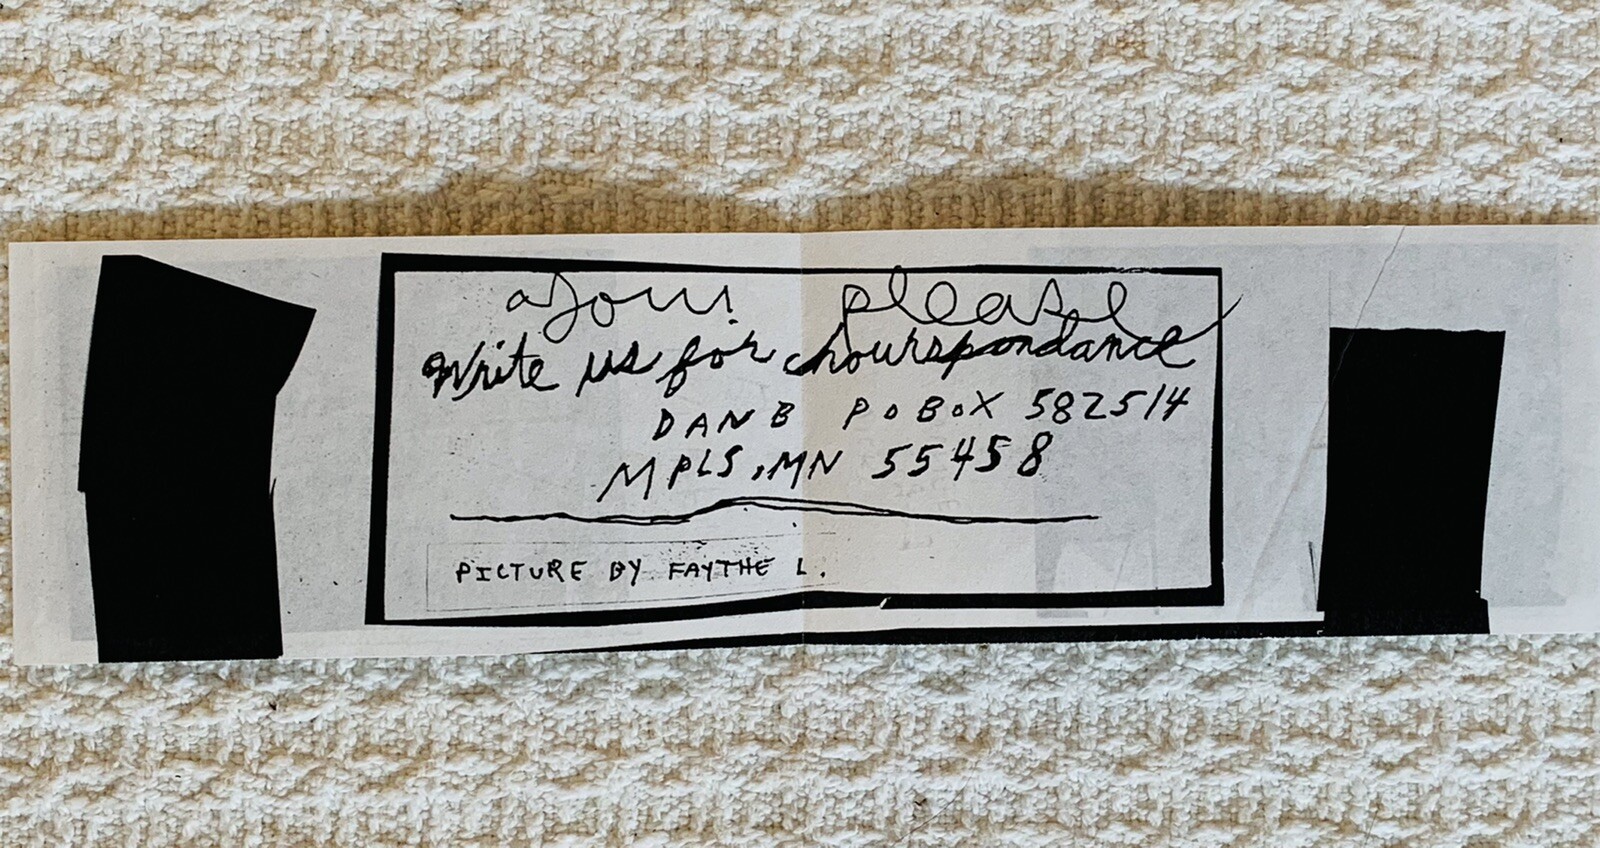 please
Write us for chourspondance
DAN B PO BOX 582514
MPLS, MN 55458
PICTURE BY FAYTHE L.